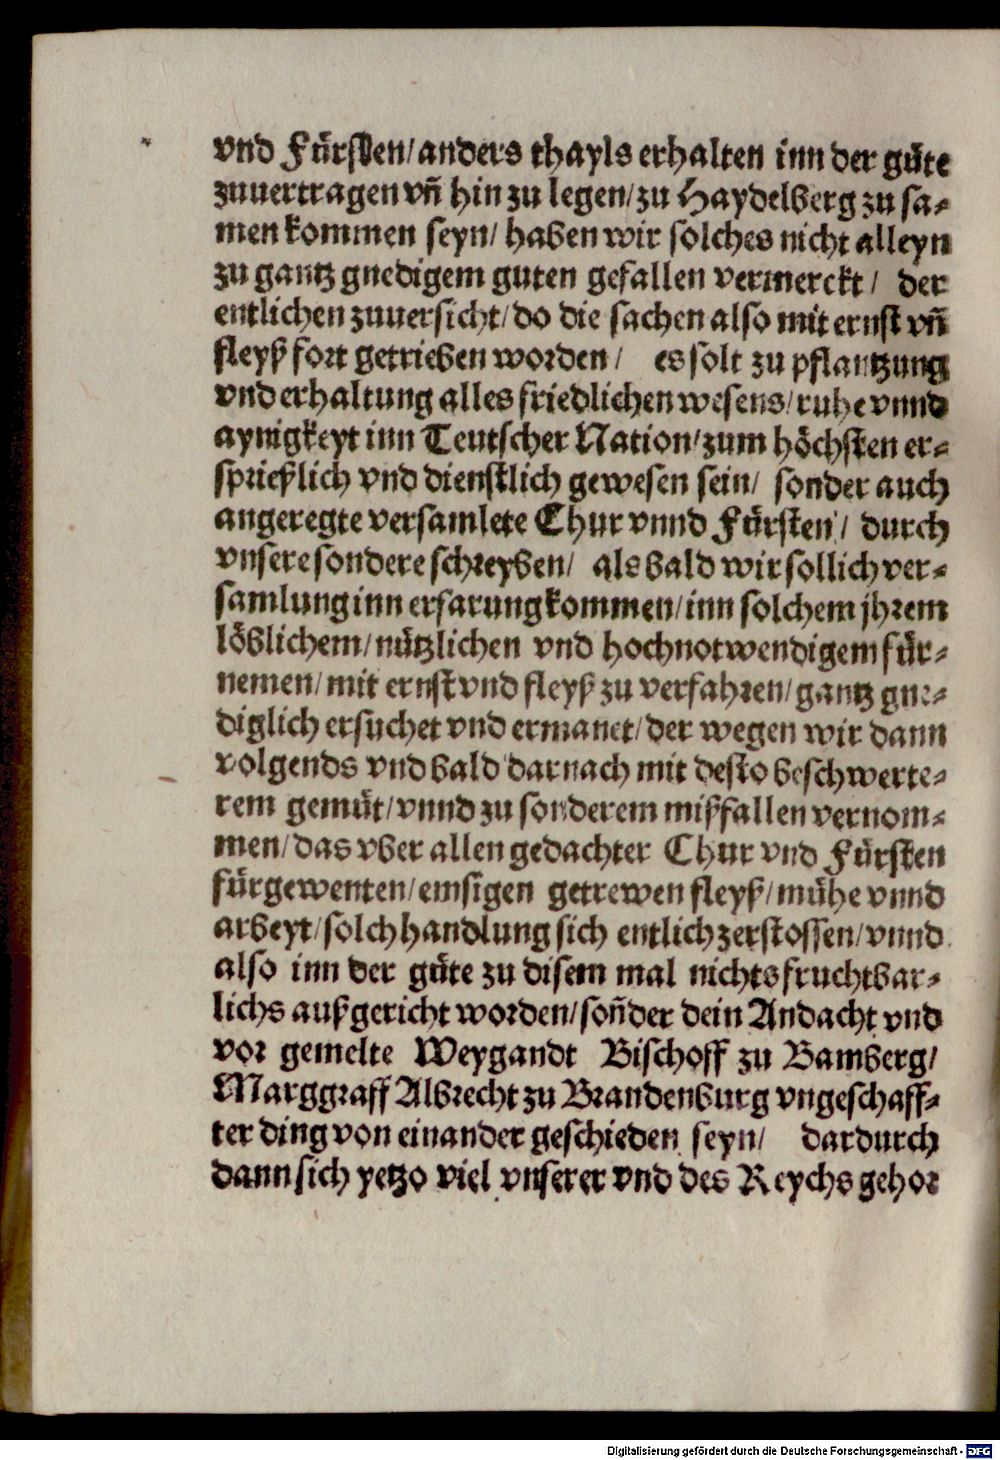 vnd Fürsten/anders thayls erhalten inn der güte
zuuertragen vñ hin zu legen/zu Haydelberg zu sa-
men kommen seyn/ haben wir solches nicht alleyn
zu gantz gnedigem guten gefallen vermerckt/ der
entlichen zuuersicht/do die sachen also mit ernst vñ
fleyß fort getrieben worden/ es solt zu pflantzung
vnd erhaltung alles friedlichen wesens/ruhe vnnd
aynigkeyt inn Teutscher Nation/zum höchsten er-
sprießlich vnd dienstlich gewesen sein/ sonder auch
angeregte versamlete Chur vnnd Fürsten/ durch
vnsere sondere schreyben/ als bald wir sollich ver-
samlung inn erfarung kommen/inn solchem jhrem
löblichem/nützlichen vnd hochnotwendigem für-
nemen/mit ernst vnd fleyß zu verfahren/gantz gne-
diglich ersuchet vnd ermanet/der wegen wir dann
volgends vnd bald darnach mit desto beschwerte-
rem gemüt/vnnd zu sonderem mißfallen vernom-
men/das vber allen gedachter Chur vnd Fürsten
fürgewenten/emsigen getrewen fleyß/mühe vnnd
arbeyt/solch handlung sich entlich zerstossen/vnnd
also inn der güte zu disem mal nichts fruchtbar-
lichs außgericht worden/soñder dein Andacht vnd
vor gemelte Weygandt Bischoff zu Bamberg/
Marggraff Albrecht zu Brandenburg vngeschaff-
ter ding von einander geschieden seyn/ dardurch
dann sich yetzo viel vnserer vnd des Reychs gehor
Digitalisierung gefördert durch die Deutsche Forschungsgemeinschaft - DFG